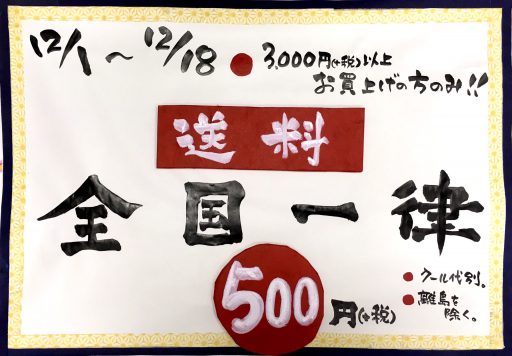 12/1～12/18 ● 3,000円(+税)以上
お買上げの方のみ!!
送料
全国一律
500円(+税)
● クール代別。
● 離島を
除く。